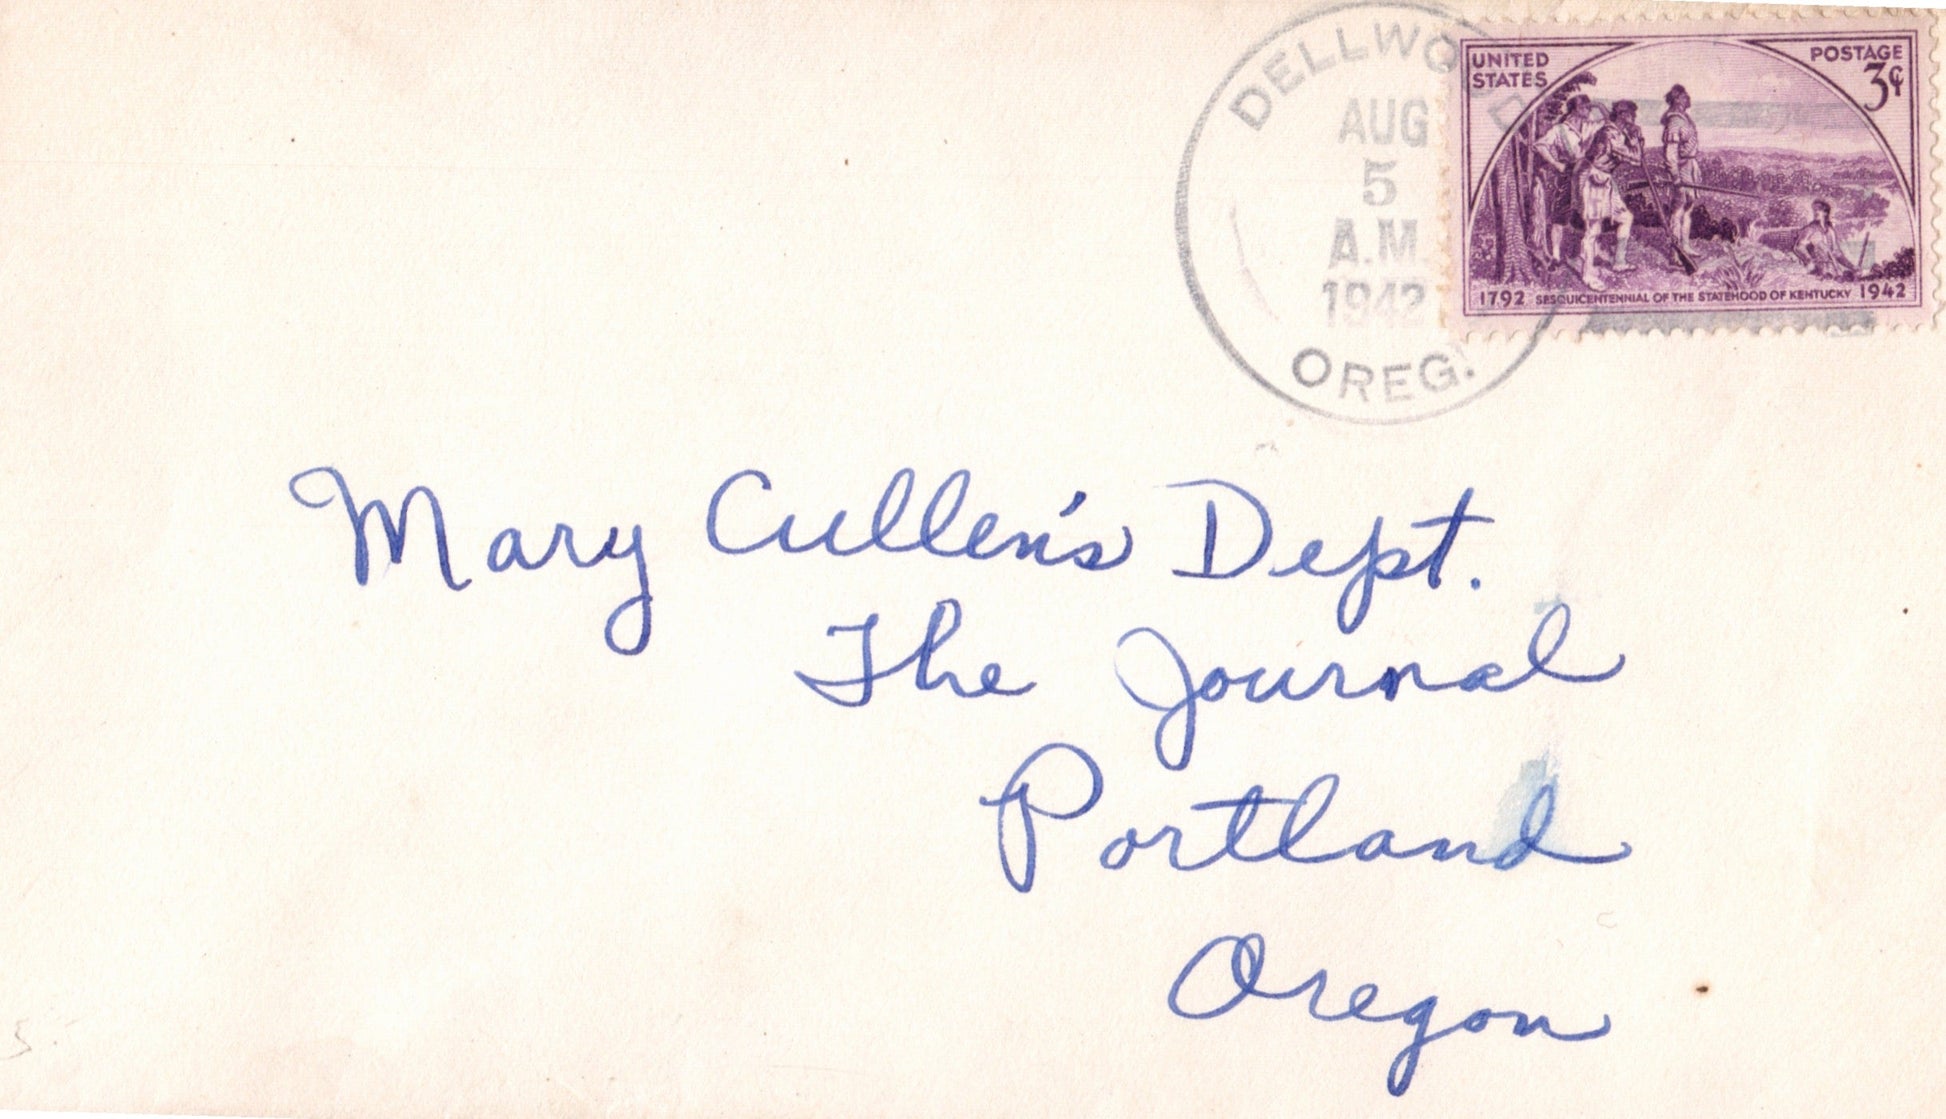 DELLWOOD
AUG
5
A.M.
1942
OREG.
UNITED
STATES
POSTAGE
3¢
1792 SESQUICENTENNIAL OF THE STATEHOOD OF KENTUCKY 1942
Mary Cullen's Dept.
The Journal
Portland
Oregon